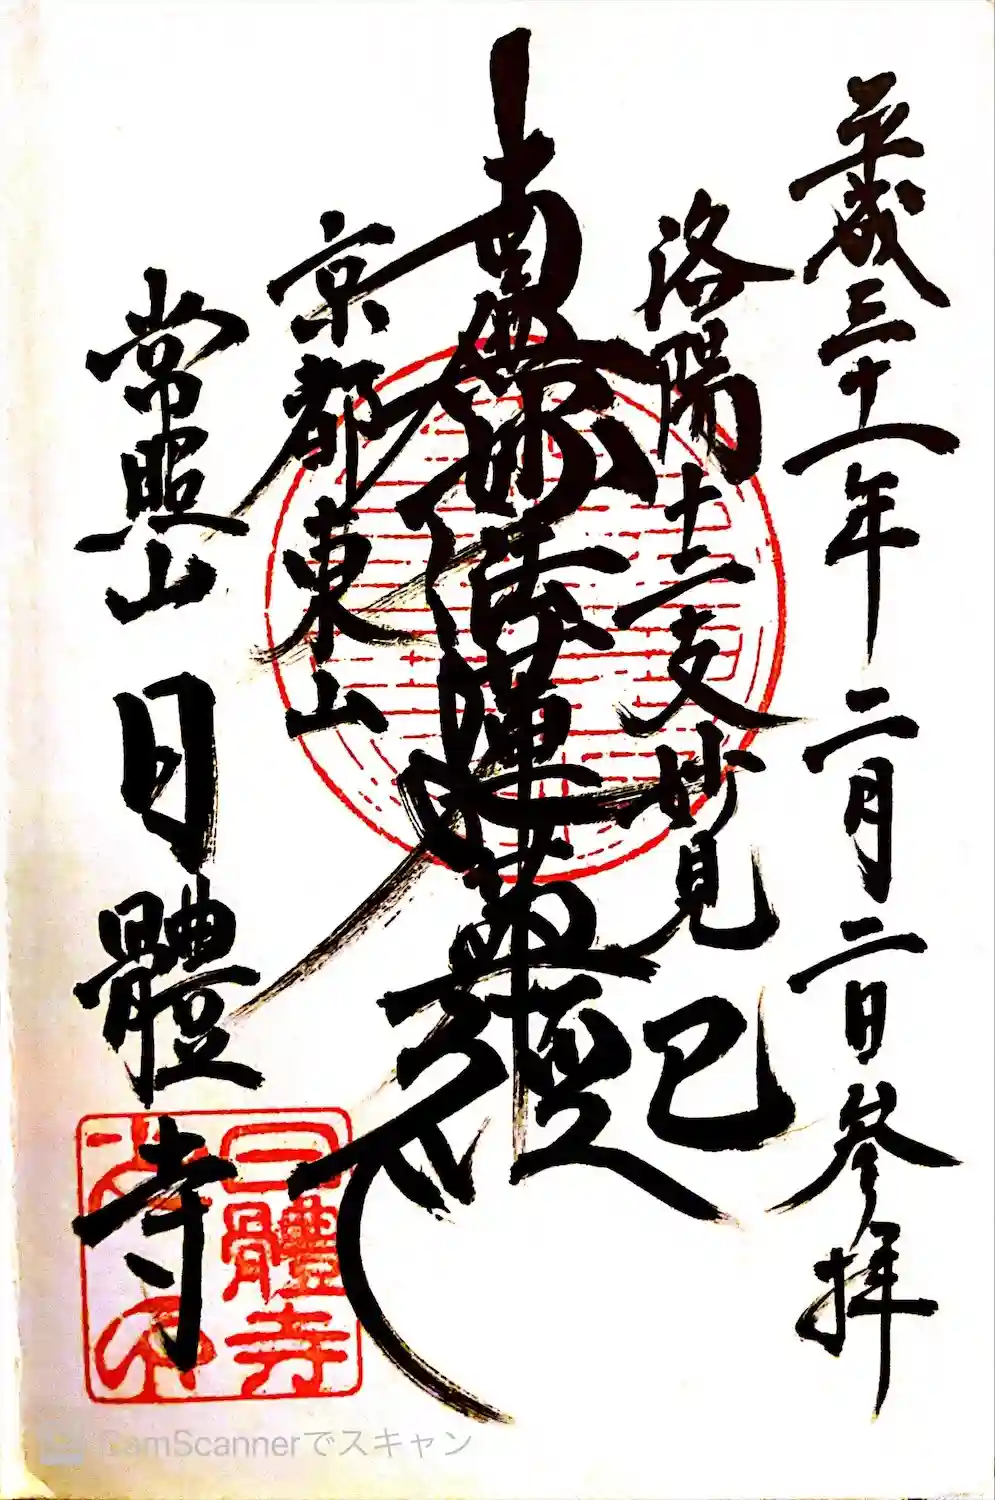 平成三十一年 二月二日 参拝
洛陽十二支妙見 巳
南無妙法蓮華経
京都東山
常照山 日體寺
日體寺
CamScannerでスキャン